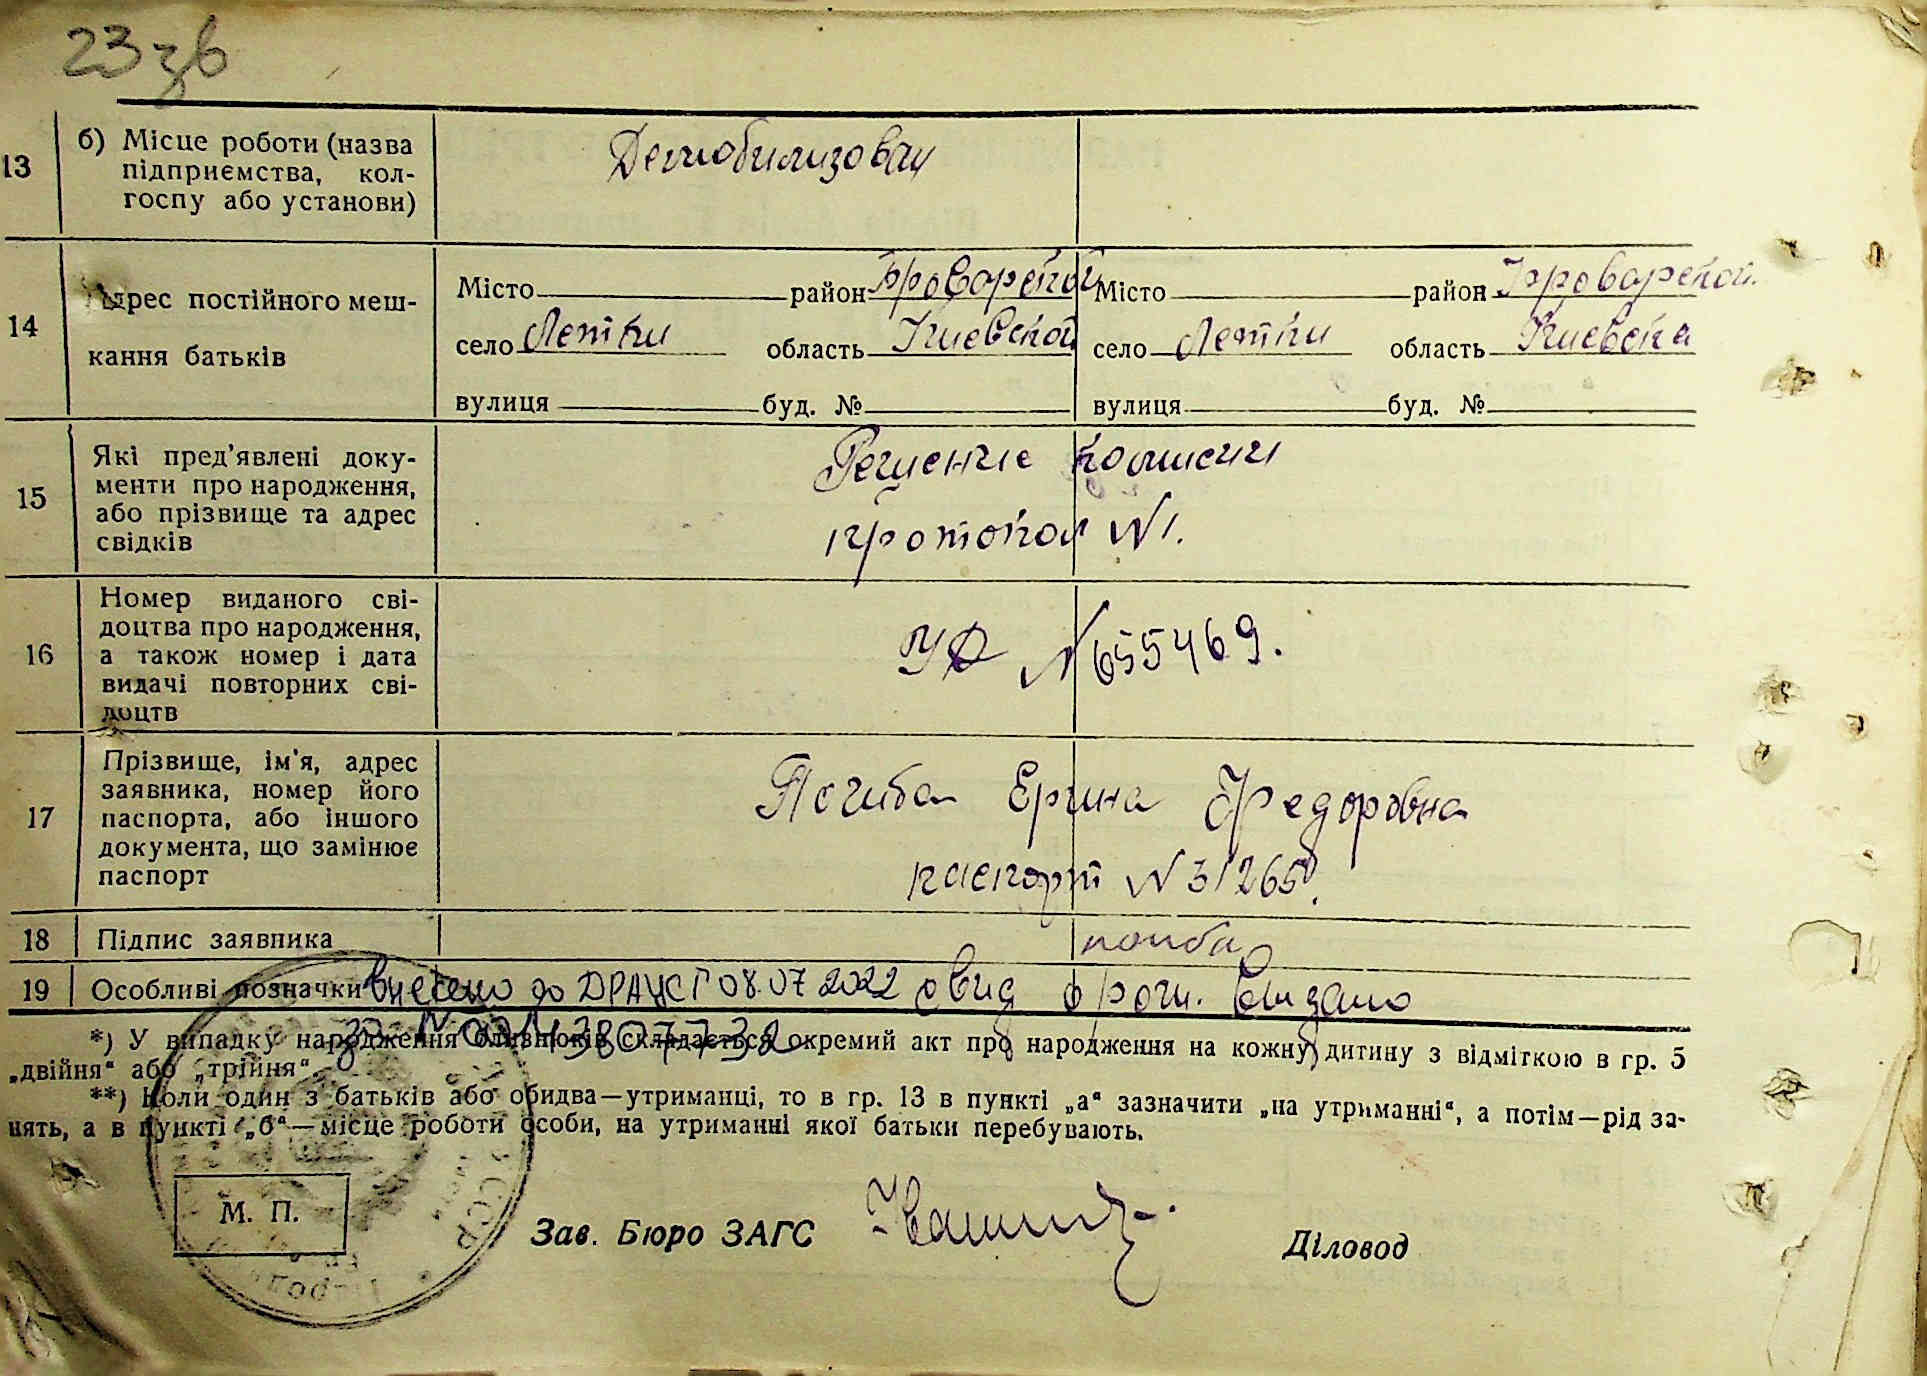 23 зв
13
б) Місце роботи (назва
підприємства, кол-
госпу або установи)
Демобилизован
14
Адрес постійного меш-
кання батьків
Місто район Броварской
село Летки область Киевской
вулиця буд. №
Місто район Броварской
село Летки область Киевска
вулиця буд. №
15
Які пред'явлені доку-
менти про народження,
або прізвище та адрес
свідків
Решение комисии
протокол №1.
16
Номер виданого сві-
доцтва про народження,
а також номер і дата
видачі повторних сві-
доцтв
УФ №655469.
17
Прізвище, ім'я, адрес
заявника, номер його
паспорта, або іншого
документа, що замінює
паспорт
Погиба Ерина Федоровна
паспорт №31265
18
Підпис заявника
19
Особливі позначки
внесено до ДРАЦСГ 08.07.2022 свид о рож. выдано
за №
*) У випадку народження близнюків складається окремий акт про народження на кожну дитину з відміткою в гр. 5
„двійня“ або „трійня“.
**) Коли один з батьків або обидва—утриманці, то в гр. 13 в пункті „а“ зазначити „на утриманні“, а потім—рід за-
нять, а в пункті „б“—місце роботи особи, на утриманні якої батьки перебувають.
М. П.
УССР
Зав. Бюро ЗАГС
Діловод